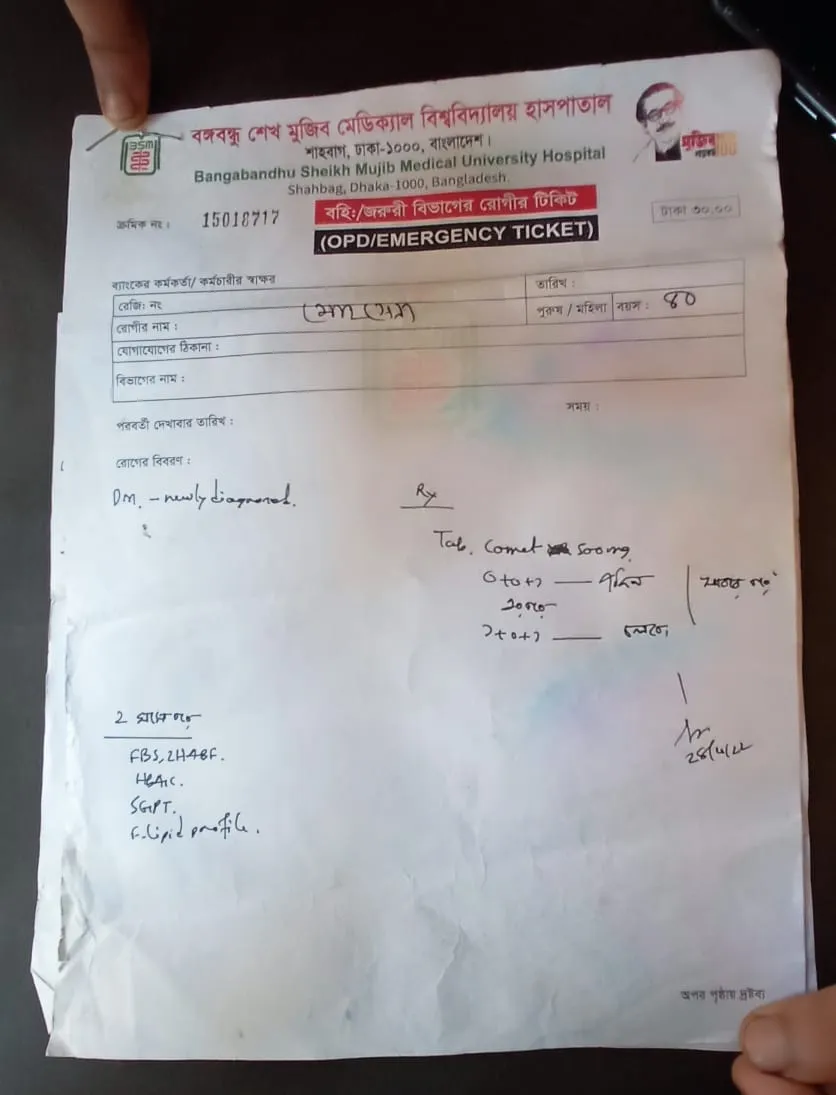 BSM
বঙ্গবন্ধু শেখ মুজিব মেডিক্যাল বিশ্ববিদ্যালয় হাসপাতাল
শাহবাগ, ঢাকা-১০০০, বাংলাদেশ।
Bangabandhu Sheikh Mujib Medical University Hospital
Shahbag, Dhaka-1000, Bangladesh.
মুজিব
100
ক্রমিক নং : 15018717
বহিঃ/জরুরী বিভাগের রোগীর টিকিট
টাকা ৩০.০০
(OPD/EMERGENCY TICKET)
ব্যাংকের কর্মকর্তা/ কর্মচারীর স্বাক্ষর
তারিখ :
রেজি: নং
পুরুষ / মহিলা বয়স : ৪০
রোগীর নাম :
যোগাযোগের ঠিকানা :
বিভাগের নাম :
পরবর্তী দেখাবার তারিখ :
সময় :
রোগের বিবরণ :
DM. - newly diagnosed.
Rx
Tab. Comet 500mg
০+০+১ —
১+০+১ — চলবে
2 মাস পর
FBS, 2HABF.
HbA1C.
SGPT.
F. Lipid profile.
অপর পৃষ্ঠায় দ্রষ্টব্য